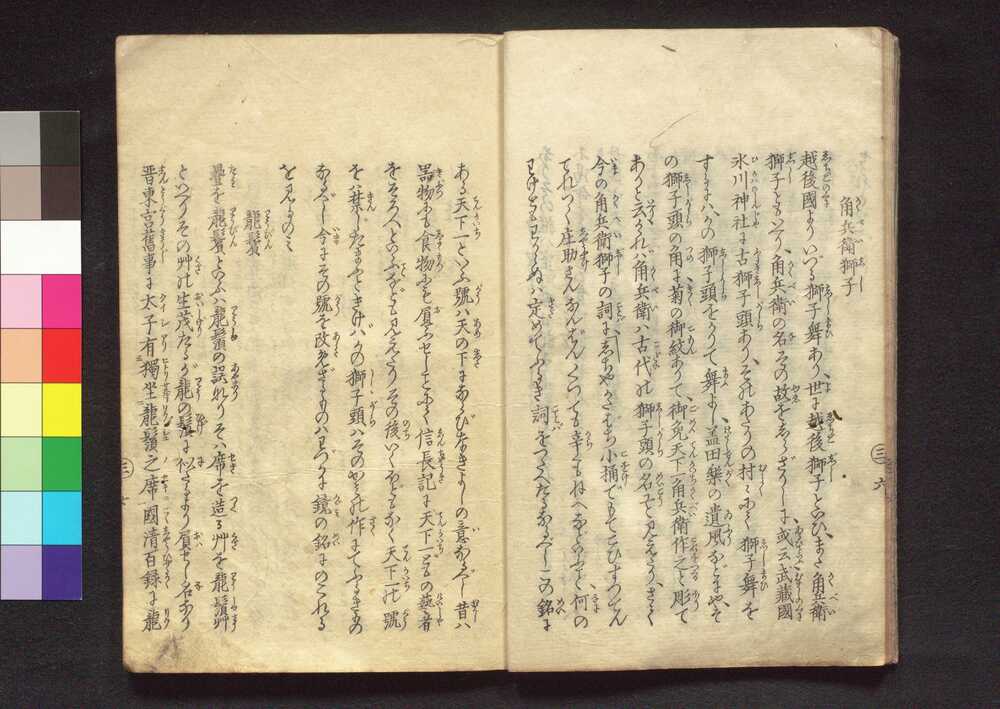 角兵衛獅子
越後國よりいづる獅子舞あり、世に越後獅子といひ、また角兵衛
獅子ともいへり、角兵衛の名その故をしらざりしに、或云武藏國
氷川神社に古獅子頭あり、そのあたりの村々にて獅子舞を
するに、かの獅子頭をかりて舞よし、蓋田樂の遺風なるにや、そ
の獅子頭の角に菊の御紋ありて、御免天下一角兵衛作之と彫て
ありと云、かゝれハ角兵衛ハ古代の獅子頭の名工と見えたり、さて
今の角兵衛獅子の詞に、
小桶でもてこひすつてん
てれつく庄助さん
何の
わけともわからぬハ定めてふるき詞をつたへたるなるべし、この銘に
ある天下一といふ號ハ天の下にならびなきよしの意なるべし、昔ハ
器物にも食物にも
信長記に天下一
の藝者
をそろへといふ
見えたり、その後いくほどもなく天下一の號
を禁じたまふときけバ、かの獅子頭ハそのかみの作にてふるきもの
なるべし、今にその號を改めざるものハ、わづかに鏡の銘にのこれる
を見るのミ
龍鬢
疊を龍鬢といふハ龍鬚の誤れり、そハ席を造る艸を龍鬚艸
といへり、その艸の生茂たるが龍の鬚に似たるより負せし名なり、
晋東宮舊事に太子有獨坐龍鬚之席、國清百録に龍
三ノ六